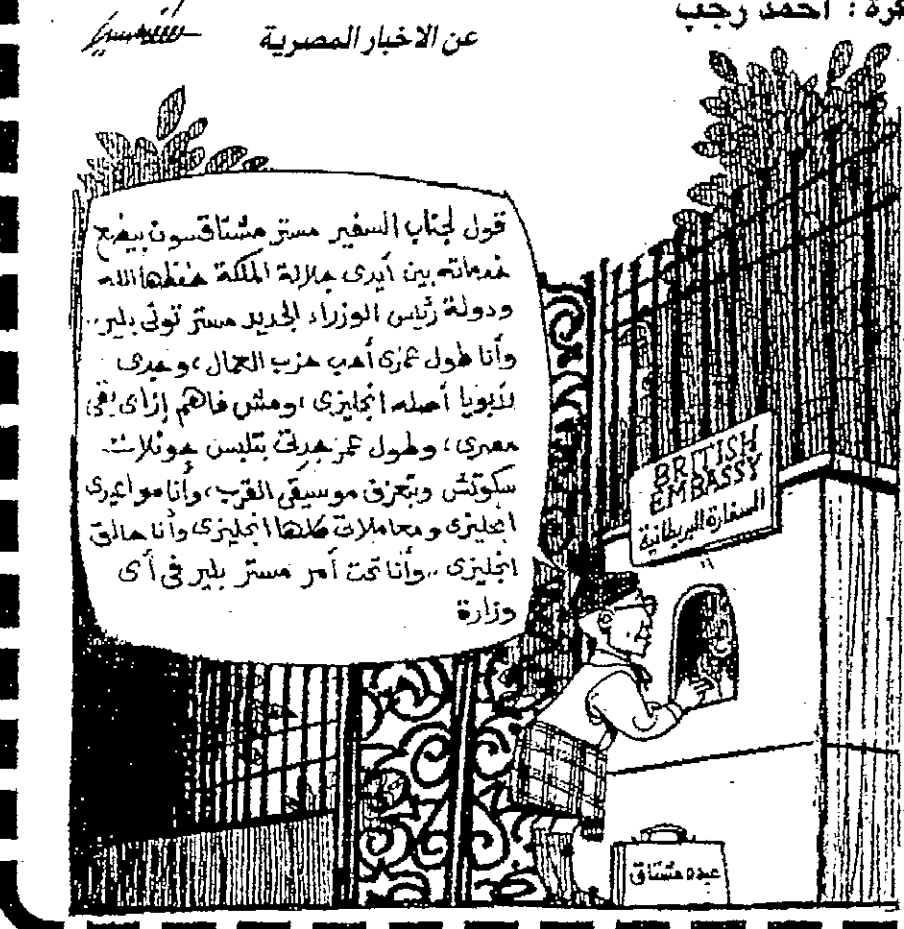 كرة : احمد رجب
عن الاخبار المصرية
قول لجناب السفير مستر مشتاقسون بيضع
خدماته بين أيدى جلالة الملكة حفظها الله
ودولة رئيس الوزراء الجديد مستر تونى بلير..
وأنا طول عمرى أحب حزب العمال ، وجدى
لأبويا أصله انجليزى ، ومش فاهم إزاى بقى
مصرى ، وطول عمر جدتى بتلبس جونلات
سكوتش وبتعزف موسيقى القرب ، وأنا مواعيدى
انجليزى ومعاملاتى كلها انجليزى وأنا حالق
انجليزى .. وأنا تحت أمر مستر بلير فى أى
وزارة
BRITISH
EMBASSY
السفارة البريطانية
عبده مشتاق